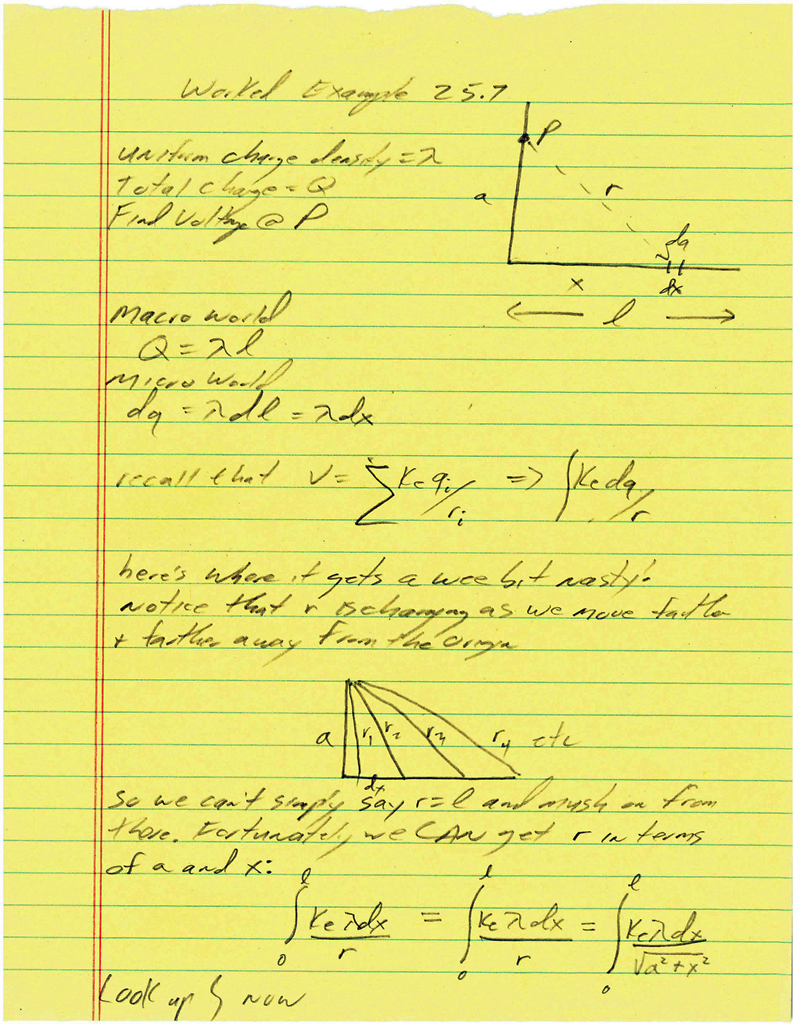 Worked Example 25.7
P
uniform charge density = λ
Total charge = Q
Find Voltage @ P
a
r
dq
x
dx
l
Macro world
Q = λl
Micro World
dq = λdl = λdx
recall that V = ∑ Ke qi/ri => ∫Ke dq/r
here's where it gets a wee bit nasty:
Notice that r is changing as we move farther
+ farther away from the origin
a r1 r2 r3 r4 etc
dx
So we can't simply say r=l and mush on from
there. Fortunately, we CAN get r in terms
of a and x:
∫₀ˡ Ke λdx/r = ∫₀ˡ Ke λdx/r = ∫₀ˡ Ke λdx/√(a²+x²)
Look up ∫ now